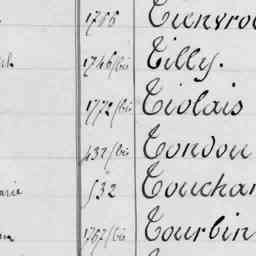 1766 Tienvro
1746/bis Tilly.
1772/bis Tiolais
432/bis Tondou
532 Touchar
1767/bis Tourbin